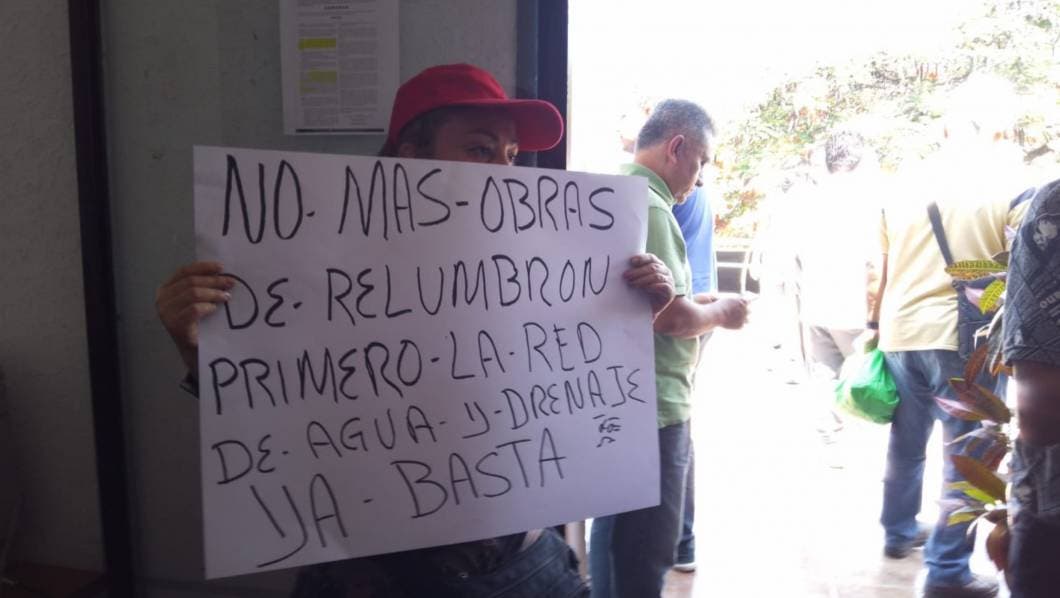 NO. MAS-OBRAS
DE. RELUMBRON
PRIMERO-LA-RED
DE. AGUA-Y-DRENAJE
YA-BASTA